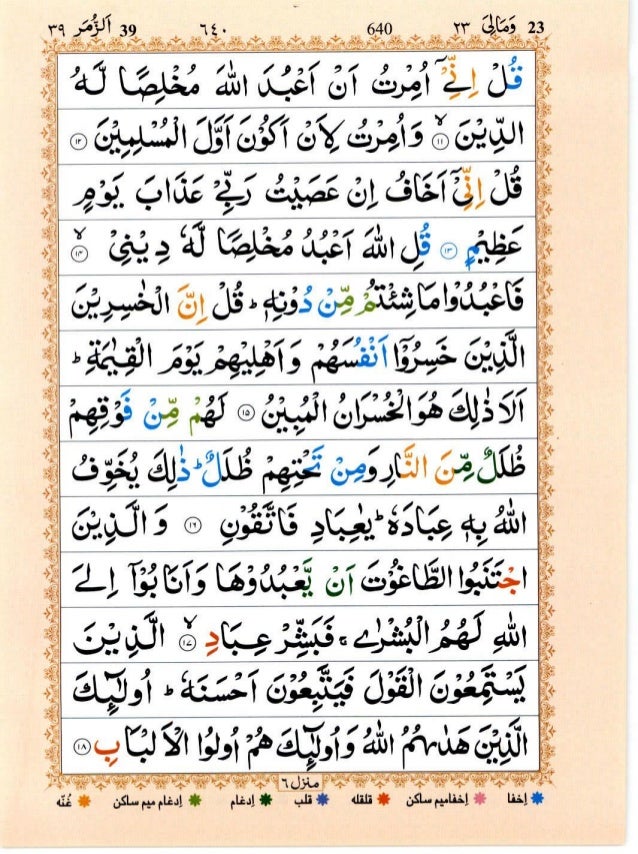 ٣٩ اَلزُّمَر 39 ٦٤٠ 640 وَمَالِیَ ٢٣ 23
قُلْ اِنِّیْۤ اُمِرْتُ اَنْ اَعْبُدَ اللّٰهَ مُخْلِصًا لَّهُ
الدِّیْنَ ۙ﴿۱۱﴾ وَاُمِرْتُ لِاَنْ اَكُوْنَ اَوَّلَ الْمُسْلِمِیْنَ ﴿۱۲﴾
قُلْ اِنِّیْۤ اَخَافُ اِنْ عَصَیْتُ رَبِّیْ عَذَابَ یَوْمٍ
عَظِیْمٍ ﴿۱۳﴾ قُلِ اللّٰهَ اَعْبُدُ مُخْلِصًا لَّهٗ دِیْنِیْ ۙ﴿۱۴﴾
فَاعْبُدُوْا مَا شِئْتُمْ مِّنْ دُوْنِهٖ ؕ قُلْ اِنَّ الْخٰسِرِیْنَ
الَّذِیْنَ خَسِرُوْۤا اَنْفُسَهُمْ وَاَهْلِیْهِمْ یَوْمَ الْقِیٰمَةِ ؕ
اَلَا ذٰلِكَ هُوَ الْخُسْرَانُ الْمُبِیْنُ ﴿۱۵﴾ لَهُمْ مِّنْ فَوْقِهِمْ
ظُلَلٌ مِّنَ النَّارِ وَمِنْ تَحْتِهِمْ ظُلَلٌ ؕ ذٰلِكَ یُخَوِّفُ
اللّٰهُ بِهٖ عِبَادَهٗ ؕ یٰعِبَادِ فَاتَّقُوْنِ ﴿۱۶﴾ وَالَّذِیْنَ
اجْتَنَبُوا الطَّاغُوْتَ اَنْ یَّعْبُدُوْهَا وَاَنَابُوْۤا اِلَی
اللّٰهِ لَهُمُ الْبُشْرٰی ۚ فَبَشِّرْ عِبَادِ ۙ﴿۱۷﴾ الَّذِیْنَ
یَسْتَمِعُوْنَ الْقَوْلَ فَیَتَّبِعُوْنَ اَحْسَنَهٗ ؕ اُولٰٓئِكَ
الَّذِیْنَ هَدٰىهُمُ اللّٰهُ وَاُولٰٓئِكَ هُمْ اُولُوا الْاَلْبَابِ ﴿۱۸﴾
منزل ٦
اِخفا اِخفامیم ساکن قلقله قلب اِدغام اِدغام میم ساکن غُنّه